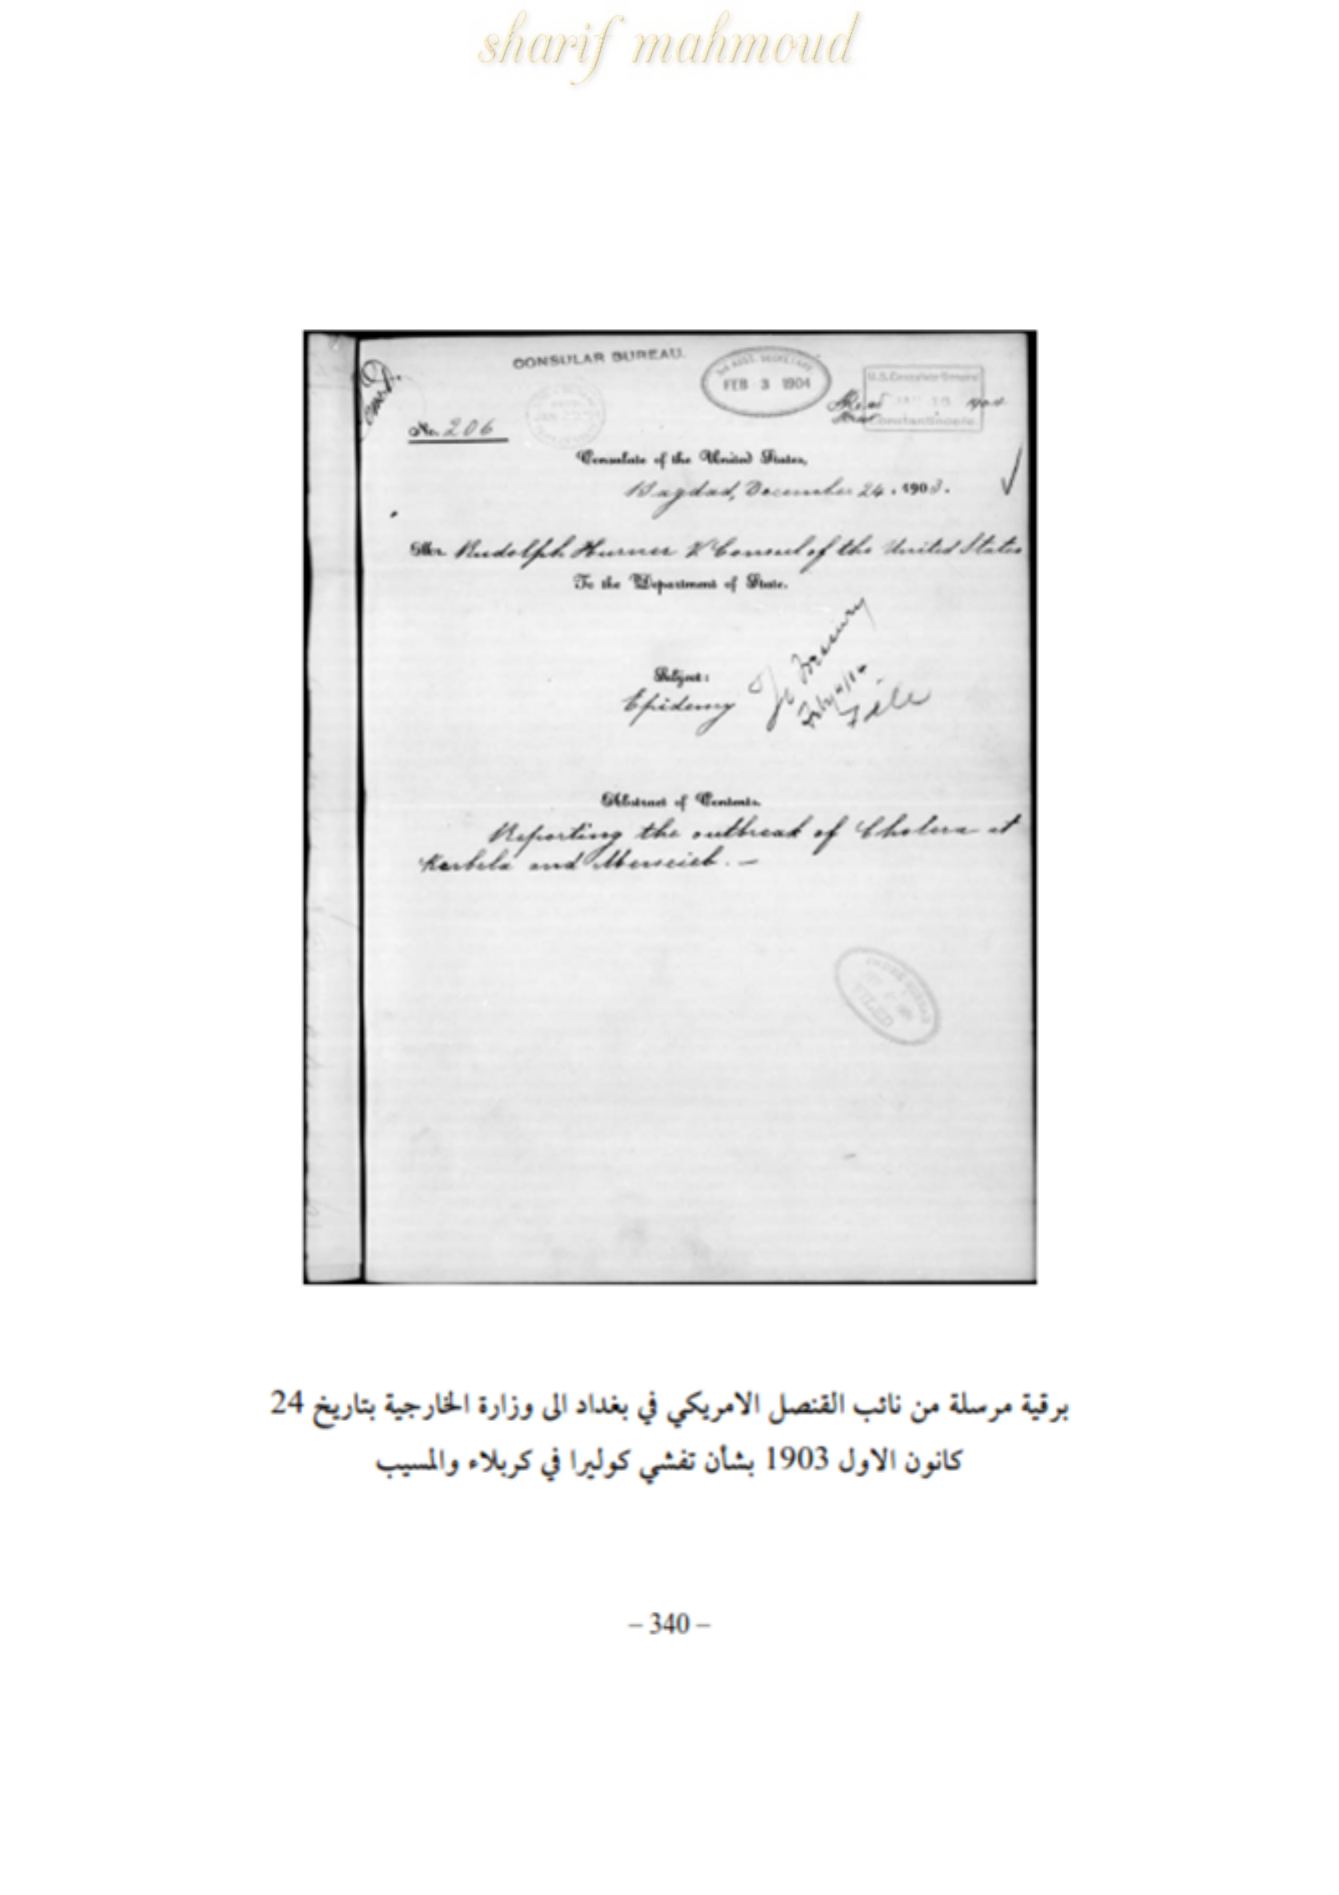 sharif mahmoud
CONSULAR BUREAU.
FEB 3 1904
U.S. Consulate General
1904
Constantinople.
No. 206
Consulate of the United States,
Bagdad, December 24, 1903.
Mr. Rudolph Hurner V. Consul of the United States
To the Department of State.
To Treasury
File
Subject:
Epidemy
Abstract of Contents.
Reporting the outbreak of Cholera at
Kerbela and Musseieb. —
FILED
برقية مرسلة من نائب القنصل الامريكي في بغداد الى وزارة الخارجية بتاريخ 24
كانون الاول 1903 بشأن تفشي كوليرا في كربلاء والمسيب
– 340 –